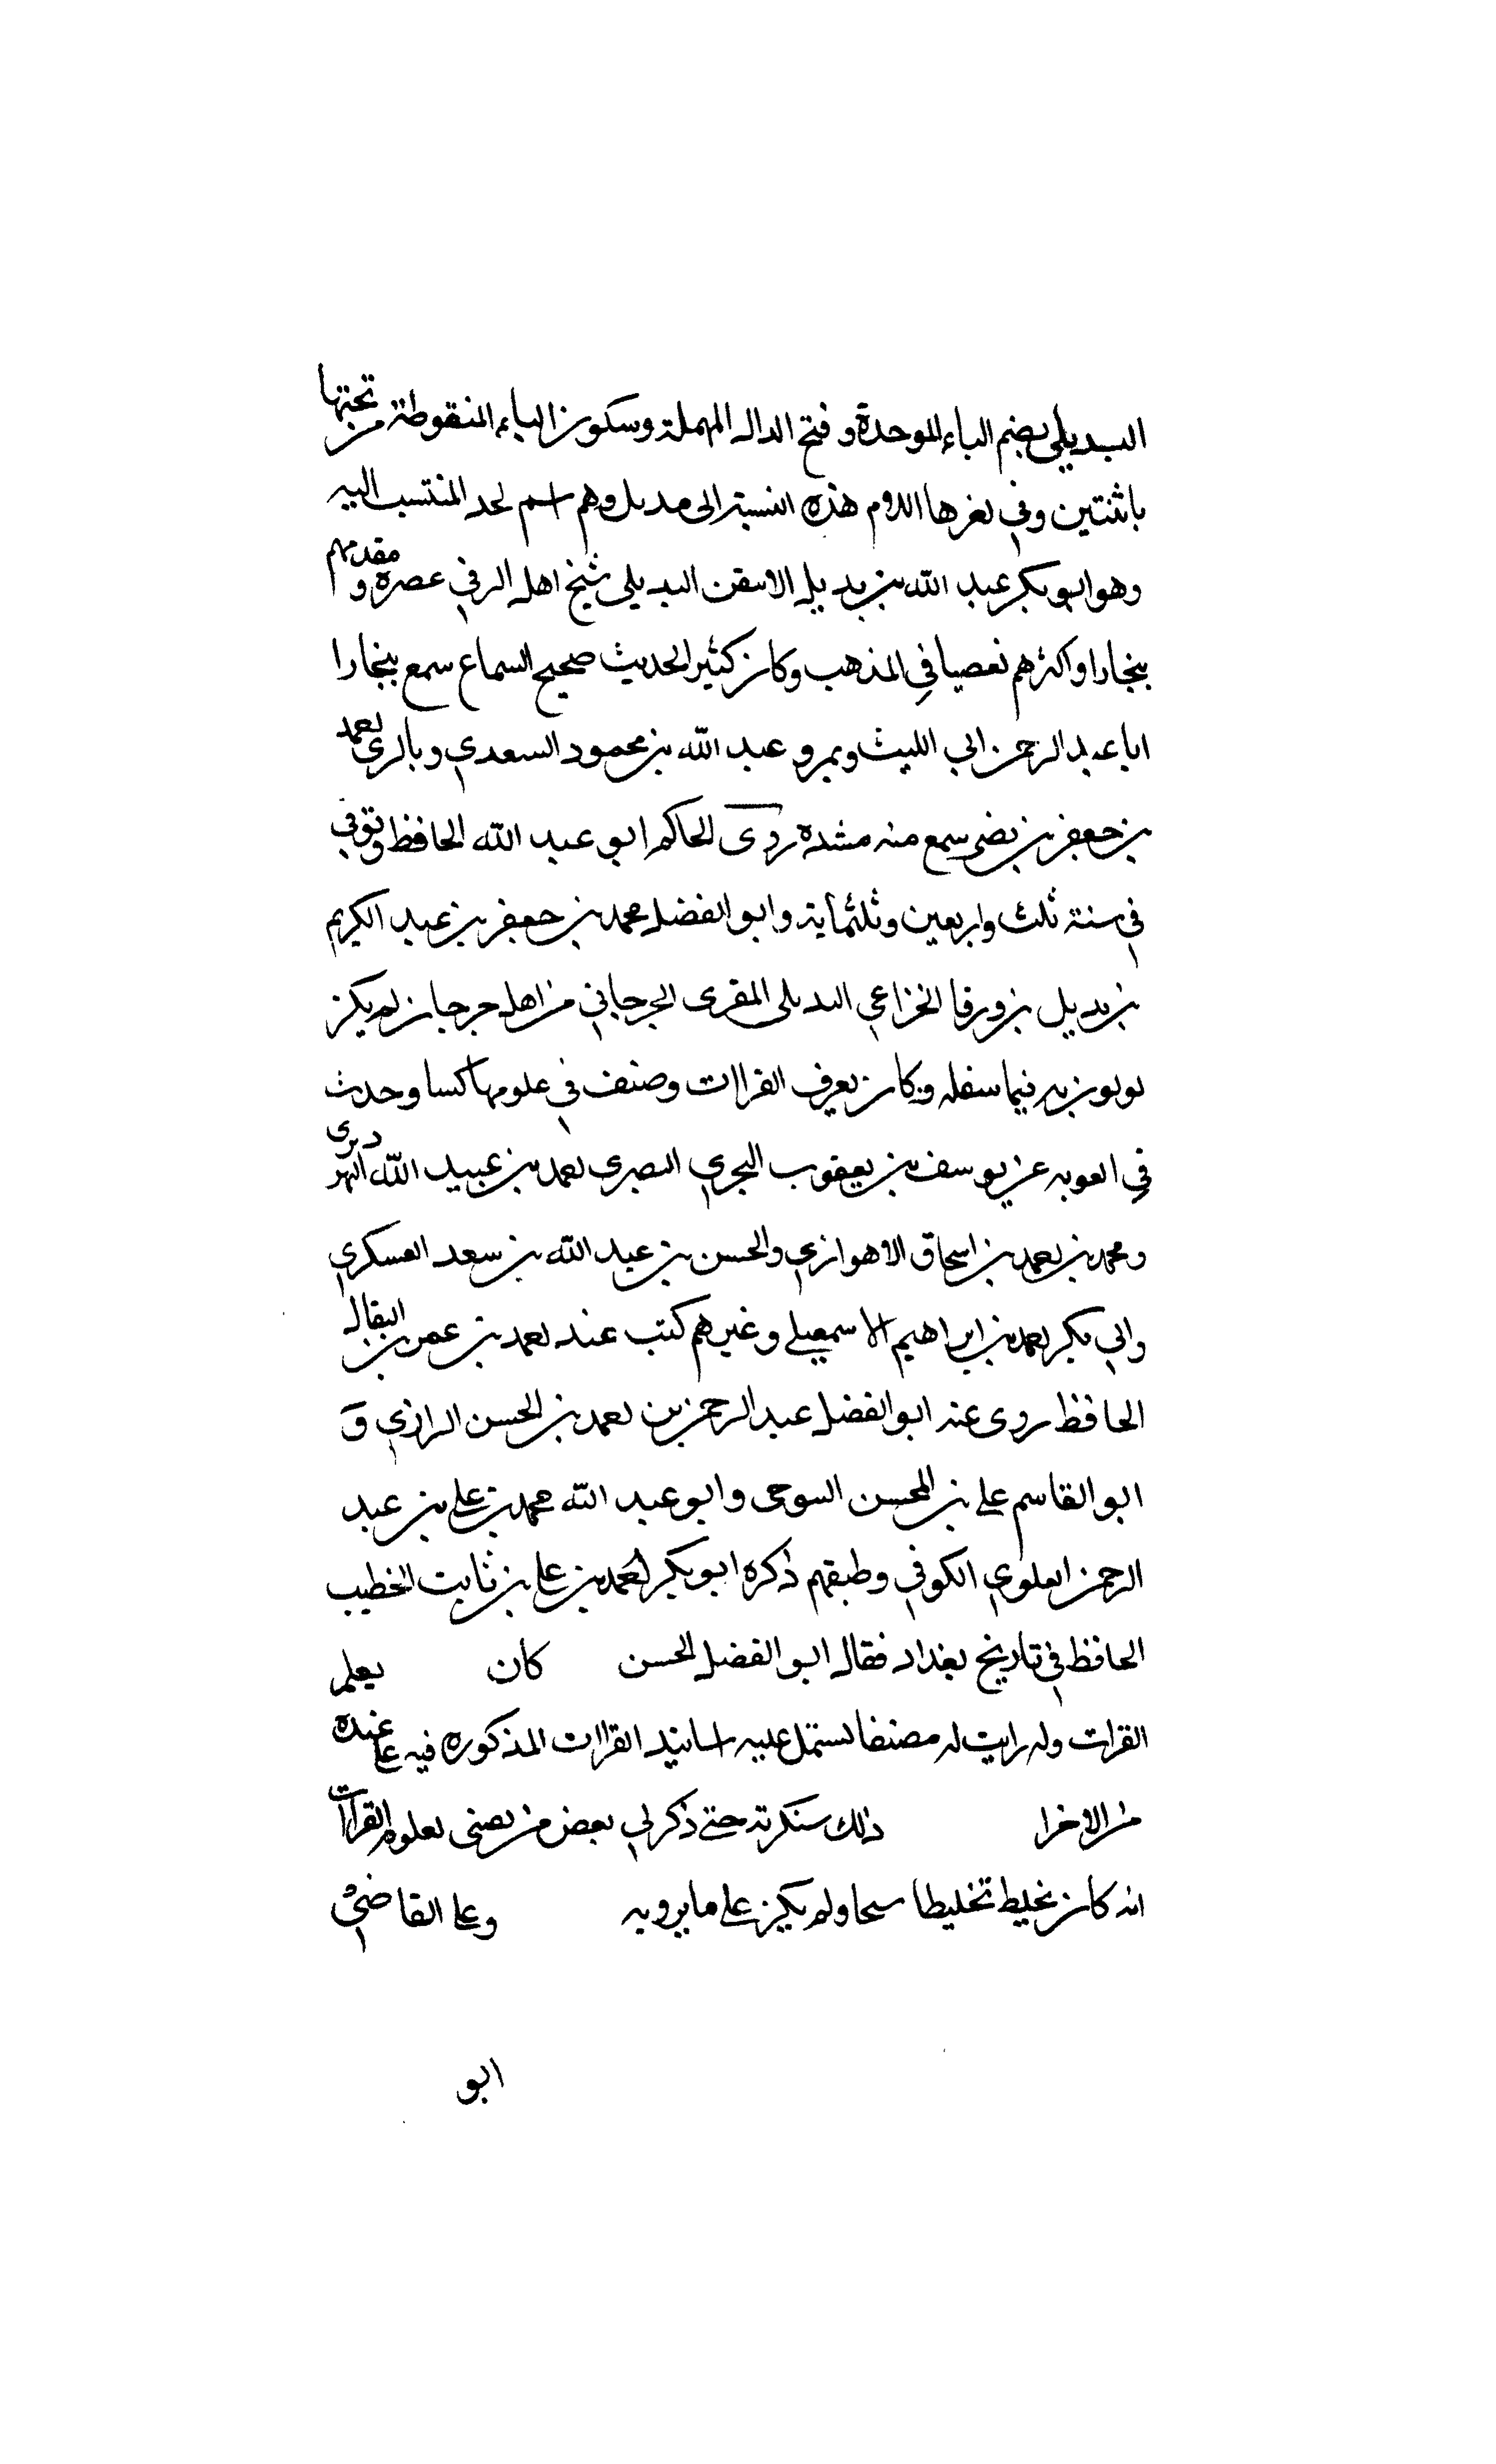 البديلي بضم الباء الموحدة وفتح الدال المهملة وسكون الياء المنقوطة من تحتها
باثنتين وفي اخرها اللام هذه النسبة الى بديل وهم اسم لجد المنتسب اليه
وهو ابو بكر عبد الله بن بديل الاسقن البديلي شيخ اهل الر في عصره ومقدمهم
ببخارا واكثرهم تعصبا في المذهب وكان كثير الحديث صحيح السماع سمع ببخارا
ابا عبد الرحمن ابي الليث وبمرو عبد الله بن محمود السعدي وبالري احمد
بن جعفر بن نصر سمع منه روى الحاكم ابو عبد الله الحافظ وتوفي
في سنة ثلث واربعين وثلثماية وابو الفضل محمد بن جعفر بن عبد الكريم
بن بديل بن ورقا الخزاعي البديلي المقرى الجرجاني من اهل جرجان لم يكن
فيما سفله وكان يعرف القراات وصنف في علومها كتبا وحدث
في عن يوسف بن يعقوب البصرى احمد بن عبيد الله النهرديرى
ومحمد بن احمد بن اسحاق الاهوازي والحسن بن عبد الله بن سعد العسكري
وابي بكر احمد بن ابراهيم الاسمعيلي وغيرهم كتب عنه احمد بن عمر بن البقال
الحافظ روى عنه ابو الفضل عبد الرحمن بن احمد بن الحسن الرازي و
ابو القاسم علي بن المحسن التنوخى وابو عبد الله محمد بن علي بن عبد
الرحمن العلوي الكوفي وطبقهم ذكره ابو بكر احمد بن علي بن ثابت الخطيب
الحافظ في تاريخ بغداد فقال ابو الفضل الحسن كان يعلم
القرات وله رايت له مصنفا يشتمل عليه اسانيد القراات المذكوره فيه عنده
من الاخرا ذلك سنكرته حتى ذكر لي بعض من يعنى بعلوم القراات
انه كان يخلط تخليطا ولم يكن على ما يرويه وعلى القاضي
ابو